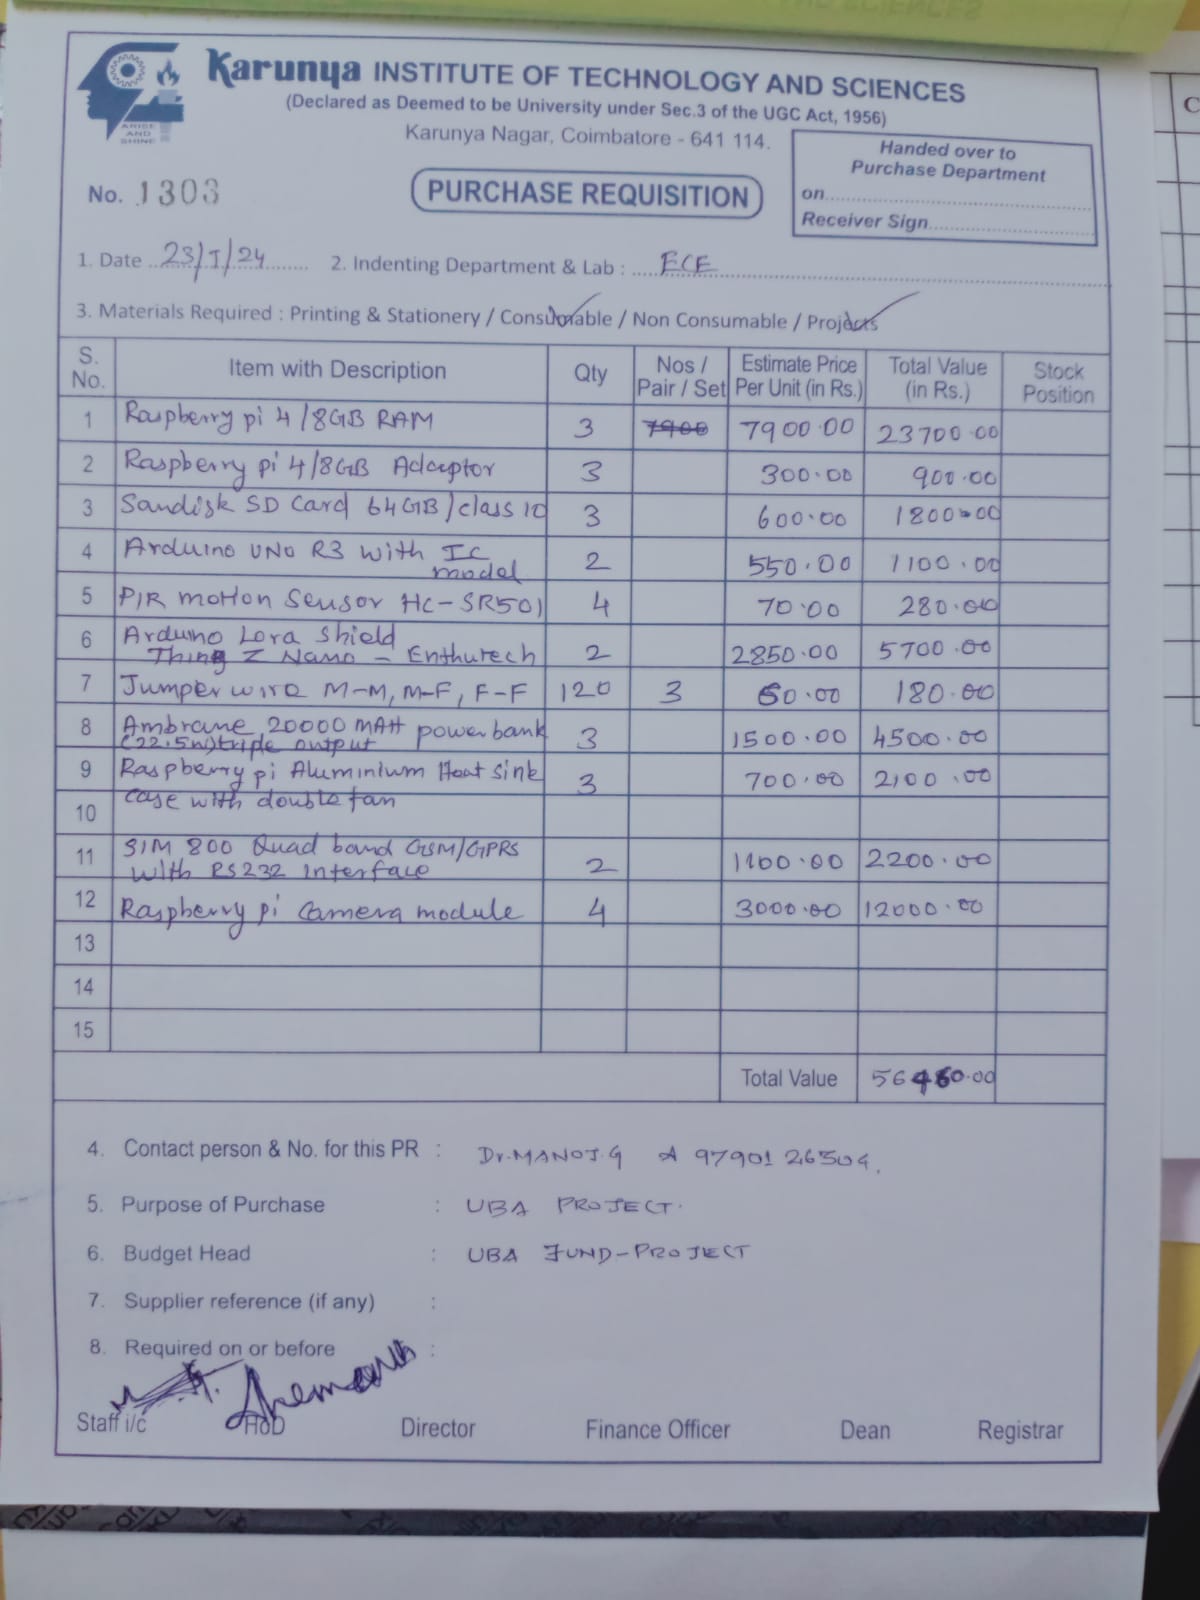 Karunya INSTITUTE OF TECHNOLOGY AND SCIENCES
(Declared as Deemed to be University under Sec.3 of the UGC Act, 1956)
Karunya Nagar, Coimbatore - 641 114.
ARISE
AND
SHINE
Handed over to
Purchase Department
on
Receiver Sign
No. 1303
PURCHASE REQUISITION
1. Date 23/1/24 2. Indenting Department & Lab : ECE
3. Materials Required : Printing & Stationery / Consumable / Non Consumable / Projects
S. No. Item with Description Qty Nos / Pair / Set Estimate Price Per Unit (in Rs.) Total Value (in Rs.) Stock Position
1 Raspberry pi 4/8GB RAM 3 7900 7900.00 23700.00
2 Raspberry pi 4/8GB Adaptor 3 300.00 900.00
3 Sandisk SD Card 64GB/class 10 3 600.00 1800.00
4 Arduino UNO R3 with IC model 2 550.00 1100.00
5 PIR motion Sensor HC-SR501 4 70.00 280.00
6 Arduino Lora Shield
Thing Z Nano - Enthutech 2 2850.00 5700.00
7 Jumper wire M-M, M-F, F-F 120 3 60.00 180.00
8 Ambrane 20000 MAH power bank
(22.5w) triple output 3 1500.00 4500.00
9 Raspberry pi Aluminium Heat sink
case with double fan 3 700.00 2100.00
10
11 SIM 800 Quad band GSM/GPRS
with RS232 interface 2 1100.00 2200.00
12 Raspberry pi camera module 4 3000.00 12000.00
13
14
15
Total Value 56460.00
4. Contact person & No. for this PR : Dr.MANOJ.G 9790126504.
5. Purpose of Purchase : UBA PROJECT.
6. Budget Head : UBA FUND-PROJECT
7. Supplier reference (if any) :
8. Required on or before :
Staff i/c HoD Director Finance Officer Dean Registrar